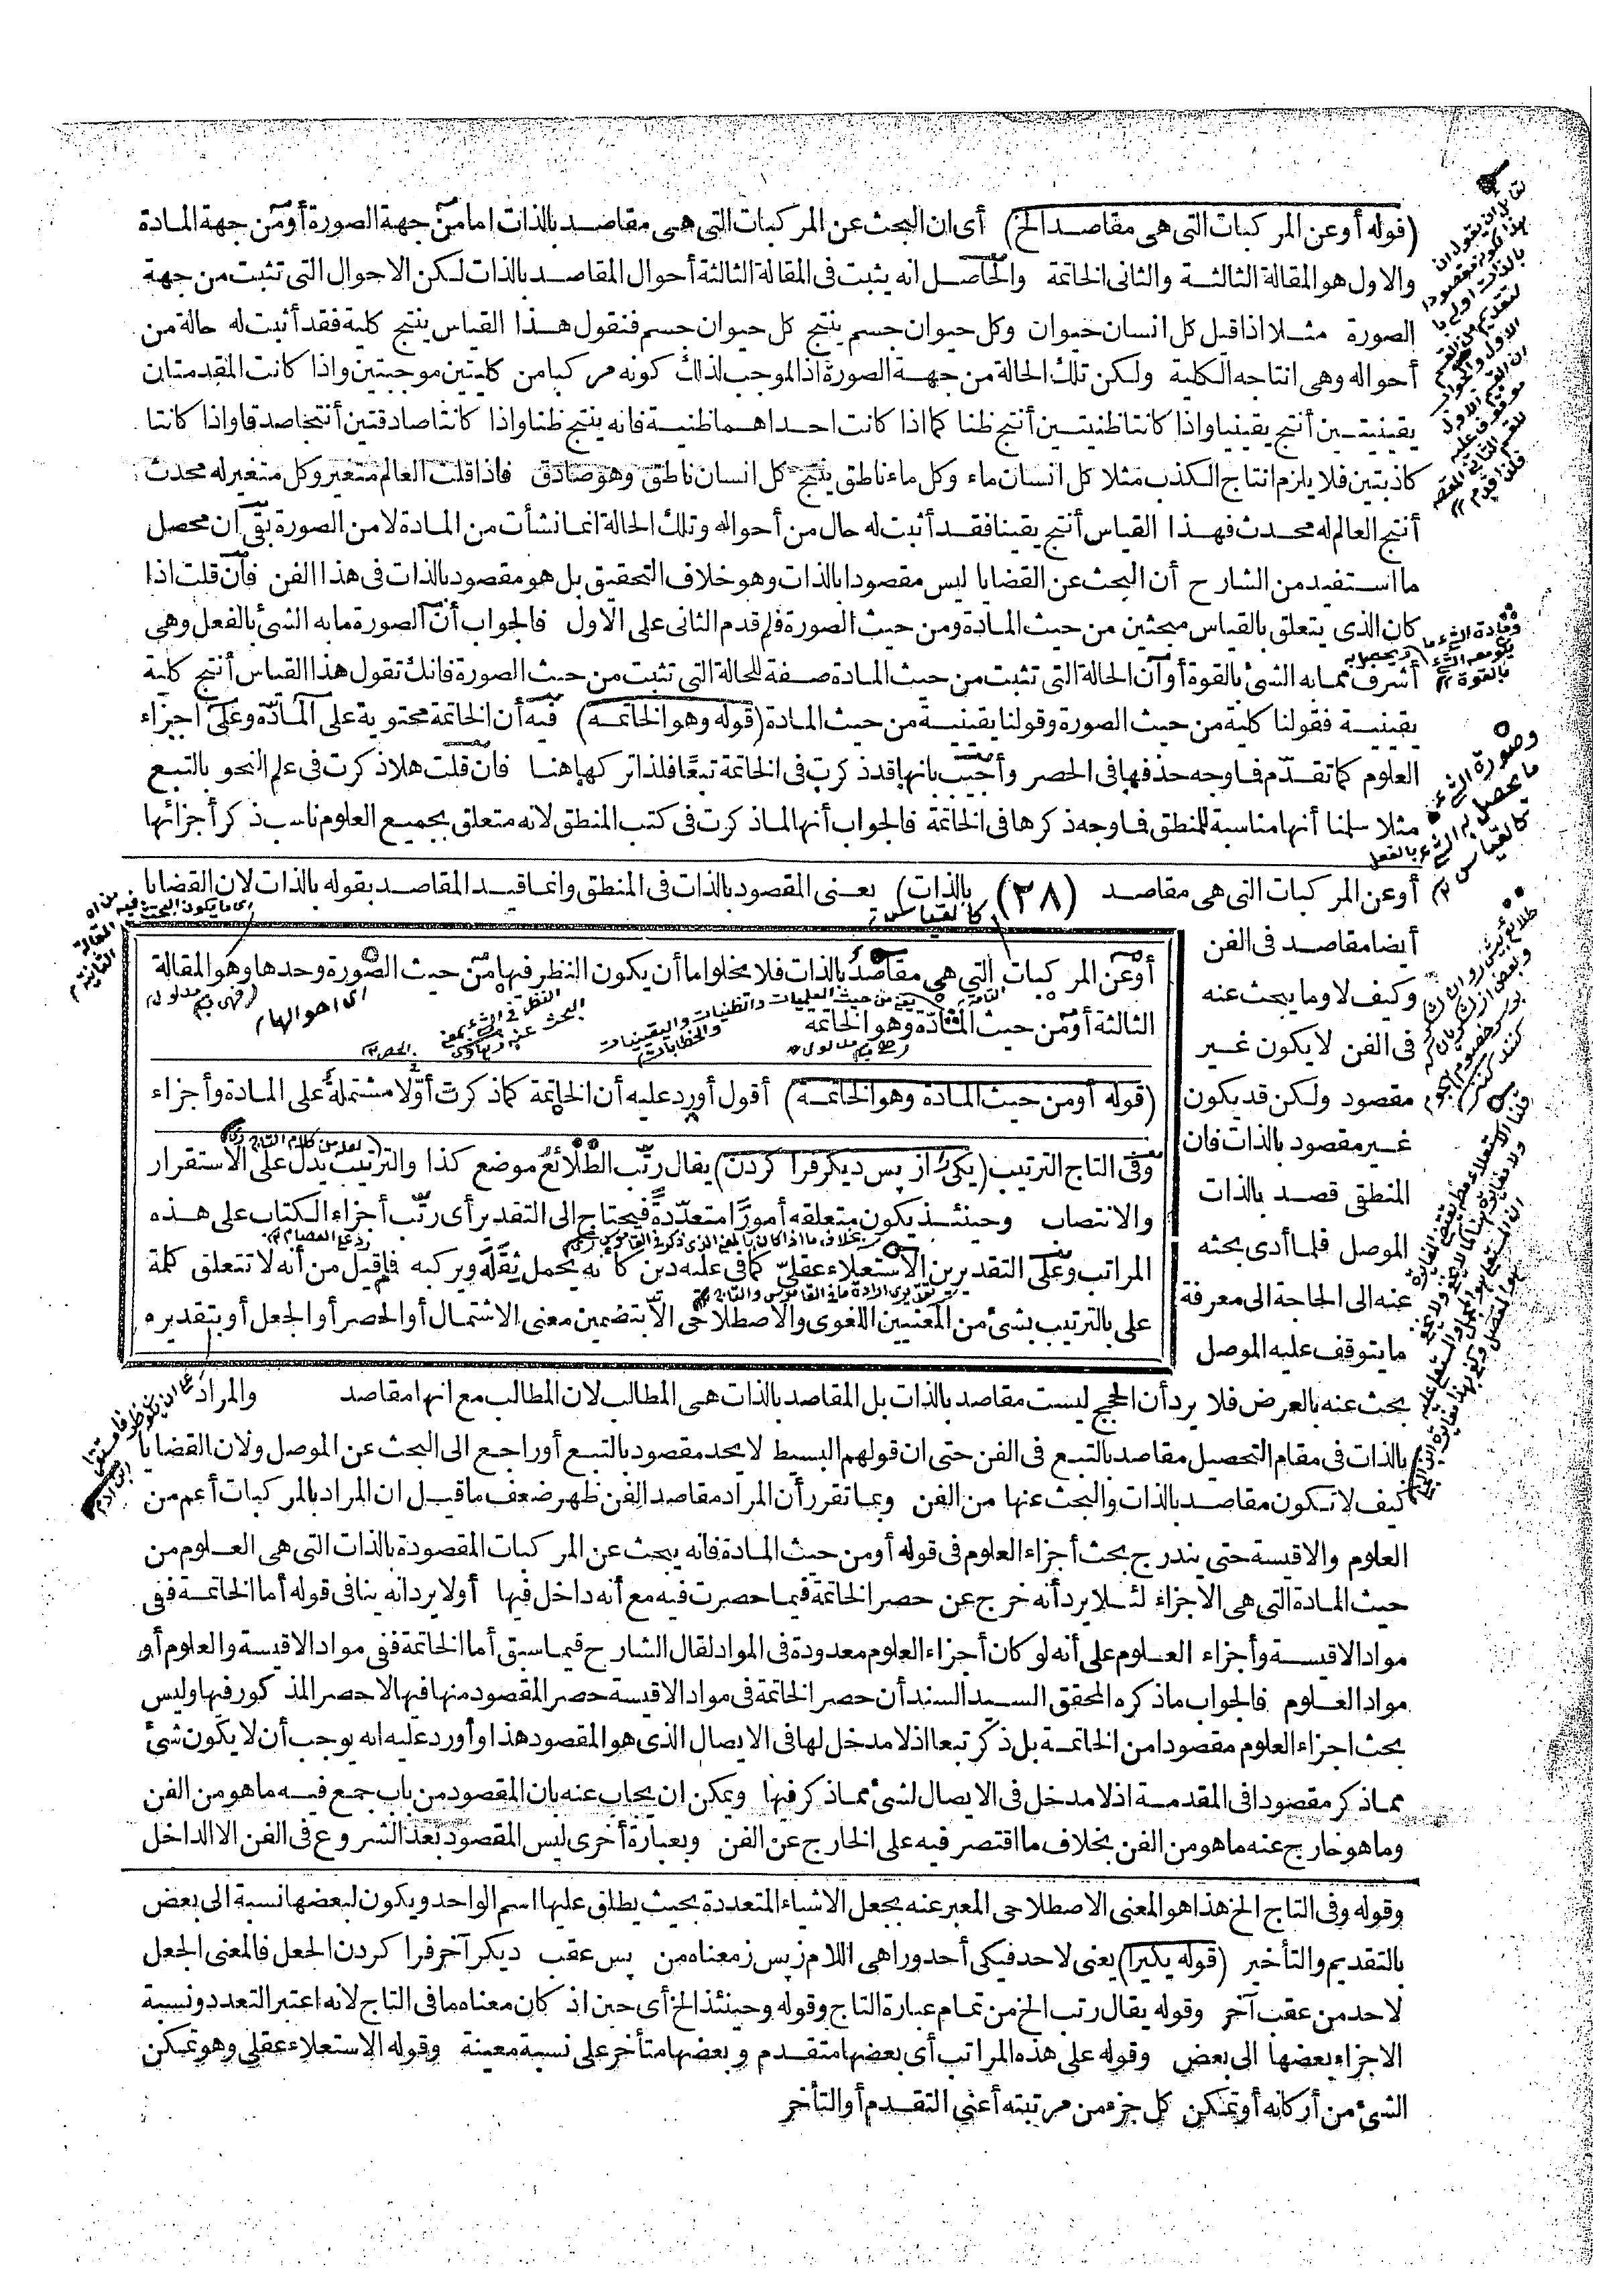 (قوله أو عن المركبات التى هى مقاصد الخ) أى ان البحث عن المركبات التى هى مقاصد بالذات اما من جهة الصورة أو من جهة المادة
والاول هو المقالة الثالثة والثانى الخاتمة والحاصل انه يثبت فى المقالة الثالثة أحوال المقاصد بالذات لكن الاحوال التى تثبت من جهة
الصورة مثلا اذا قيل كل انسان حيوان وكل حيوان جسم ينتج كل حيوان جسم فنقول هذا القياس ينتج كلية فقد أثبت له حالة من
أحواله وهى انتاجه الكلية ولكن تلك الحالة من جهة الصورة اذ الموجب لذلك كونه مركبا من كليتين موجبتين واذا كانت المقدمتان
يقينيتين أنتج يقينيا واذا كانتا ظنيتين أنتج ظنا كما اذا كانت احداهما ظنية فانه ينتج ظنا واذا كانتا صادقتين أنتجا صدقا واذا كانتا
كاذبتين فلا يلزم انتاج الكذب مثلا كل انسان ماء وكل ماء ناطق ينتج كل انسان ناطق وهو صادق فاذا قلت العالم متغير وكل متغير له محدث
أنتج العالم له محدث فهذا القياس أنتج يقينا فقد أثبت له حال من أحواله وتلك الحالة انما نشأت من المادة لا من الصورة بقى ان محصل
ما استفيد من الشارح أن البحث عن القضايا ليس مقصودا بالذات وهو خلاف التحقيق بل هو مقصود بالذات فى هذا الفن فان قلت اذا
كان الذى يتعلق بالقياس مبحثين من حيث المادة ومن حيث الصورة فلم قدم الثانى على الاول فالجواب أن الصورة ما به الشئ بالفعل وهى
أشرف مما به الشئ بالقوة أو أن الحالة التى تثبت من حيث المادة صفة للحالة التى تثبت من حيث الصورة فانك تقول هذا القياس أنتج كلية
يقينية فقولنا كلية من حيث الصورة وقولنا يقينية من حيث المادة (قوله وهو الخاتمه) فيه أن الخاتمة محتوية على المادة وعلى اجزاء
العلوم كما تقدّم فما وجه حذفها فى الحصر وأجيب بانها قد ذكرت فى الخاتمة تبعًا فلذا تركها هنا فان قلت هلا ذكرت فى علم النحو بالتبع
مثلا سلمنا أنها مناسبة للمنطق فما وجه ذكرها فى الخاتمة فالجواب أنها لما ذكرت فى كتب المنطق لانه متعلق بجميع العلوم ناسب ذكر أجزائها
أو عن المركبات التى هى مقاصد (٢٨) بالذات) يعنى المقصود بالذات فى المنطق وانما قيد المقاصد بقوله بالذات لان القضايا
أيضا مقاصد فى الفن
وكيف لا وما يبحث عنه
فى الفن لا يكون غير
مقصود ولكن قد يكون
غير مقصود بالذات فان
المنطق قصد بالذات
الموصل فلما أدى بحثه
عنه الى الحاجة الى معرفة
ما يتوقف عليه الموصل
أو عن المركبات التى هى مقاصد بالذات فلا يخلو اما أن يكون النظر فيها من حيث الصورة وحدها وهو المقالة
الثالثة أو من حيث المادّة وهو الخاتمه
(قوله أو من حيث المادة وهو الخاتمة) أقول أورد عليه أن الخاتمة كما ذكرت أوّلا مشتملة على المادة وأجزاء
وفى التاج الترتيب (يكى را از پس ديكر فرا كردن) يقال رتّب الطلائع موضع كذا والترتيب يدل على الاستقرار
والانتصاب وحينئذ يكون متعلقه أمورًا متعدّدة فيحتاج الى التقدير أى رتّب أجزاء الكتاب على هذه
المراتب وعلى التقديرين الاستعلاء عقلىّ كما فى عليه دين كأنه يحمل ثقله ويركبه فما قيل من أنه لا تتعلق كلمة
على بالترتيب بشئ من المعنيين اللغوى والاصطلاحى الا بتضمين معنى الاشتمال أو الحصر أو الجعل أو بتقديره
بحث عنه بالعرض فلا يرد أن الحجج ليست مقاصد بالذات بل المقاصد بالذات هى المطالب لان المطالب مع انها مقاصد والمراد
بالذات فى مقام التحصيل مقاصد بالتبع فى الفن حتى ان قولهم البسيط لا يحد مقصود بالتبع أو راجع الى البحث عن الموصل ولان القضايا
كيف لا تكون مقاصد بالذات والبحث عنها من الفن وبما تقرر أن المراد مقاصد الفن ظهر ضعف ما قيل ان المراد بالمركبات أعم من
العلوم والاقيسة حتى يندرج بحث أجزاء العلوم فى قوله أو من حيث المادة فانه يبحث عن المركبات المقصودة بالذات التى هى العلوم من
حيث المادة التى هى الاجزاء لئلا يرد أنه خرج عن حصر الخاتمة فيما حصرت فيه مع أنه داخل فيها أو لا يرد انه ينافى قوله أما الخاتمة ففى
مواد الاقيسة وأجزاء العلوم على أنه لو كان أجزاء العلوم معدودة فى المواد لقال الشارح فيما سبق أما الخاتمة ففى مواد الاقيسة والعلوم أو
مواد العلوم فالجواب ما ذكره المحقق السيد السند أن حصر الخاتمة فى مواد الاقيسة حصر المقصود منها فيها لا حصر المذكور فيها وليس
بحث اجزاء العلوم مقصودا من الخاتمة بل ذكر تبعا اذ لا مدخل لها فى الايصال الذى هو المقصود هذا وأورد عليه انه يوجب أن لا يكون شئ
مما ذكر مقصودا فى المقدمة اذ لا مدخل فى الايصال لشئ مما ذكر فيها ويمكن ان يجاب عنه بان المقصود من باب جمع فيه ما هو من الفن
وما هو خارج عنه ما هو من الفن بخلاف ما اقتصر فيه على الخارج عن الفن وبعبارة أخرى ليس المقصود بعد الشروع فى الفن الا الداخل
وقوله وفى التاج الخ هذا هو المعنى الاصطلاحى المعبر عنه بجعل الاشياء المتعددة بحيث يطلق عليها اسم الواحد ويكون لبعضها نسبة الى بعض
بالتقديم والتأخير (قوله يكيرا) يعنى لاحد فيكى أحد ورا هى اللام ز پس ز معناه من پس عقب ديكر آخر فرا كردن الجعل فالمعنى الجعل
لاحد من عقب آخر وقوله يقال رتب الخ من تمام عبارة التاج وقوله وحينئذ الخ أى حين اذ كان معناه ما فى التاج لانه اعتبر التعدد ونسبة
الاجزاء بعضها الى بعض وقوله على هذه المراتب أى بعضها متقدم وبعضها متأخر على نسبة معينة وقوله الاستعلاء عقلى وهو تمكن
الشئ من أركانه أو تمكن كل جزء من مرتبته أعنى التقدم أو التأخر